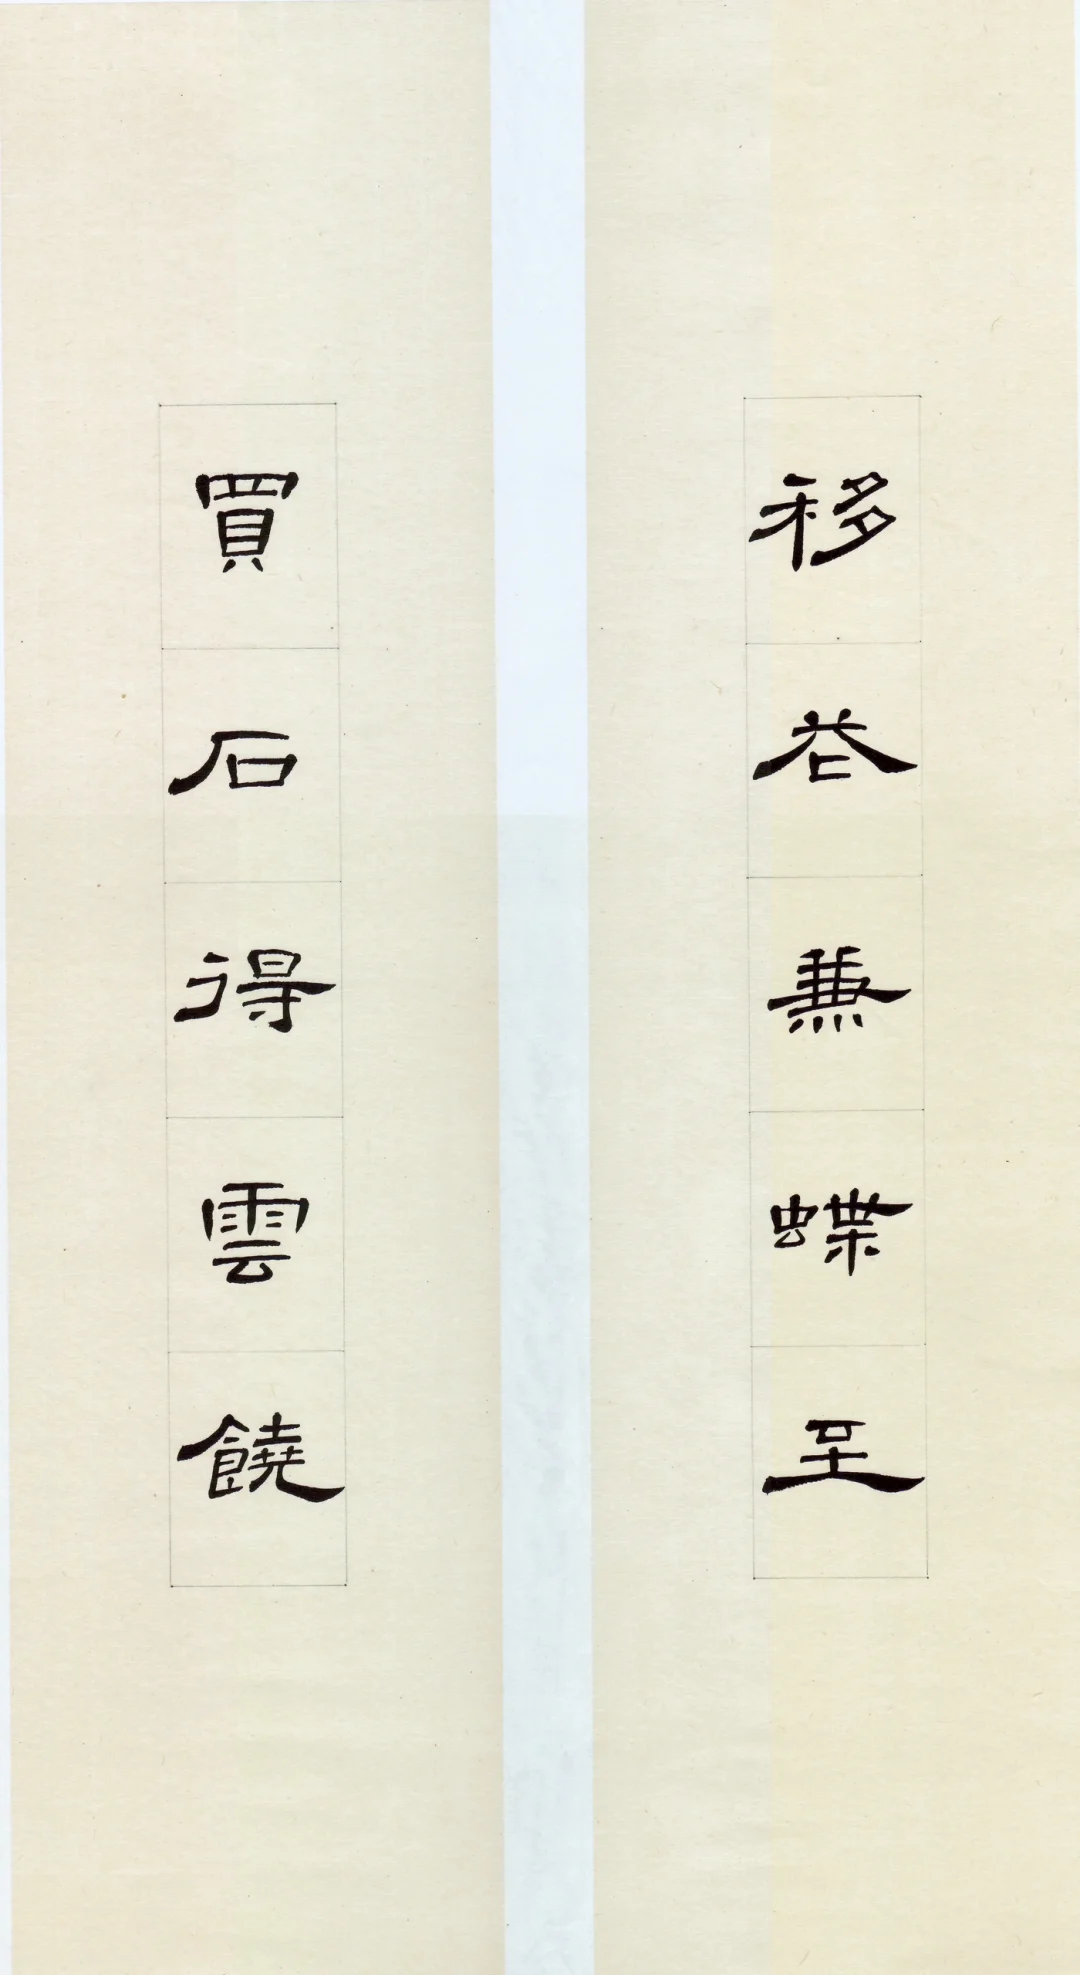 移花兼蝶至
買石得雲饒